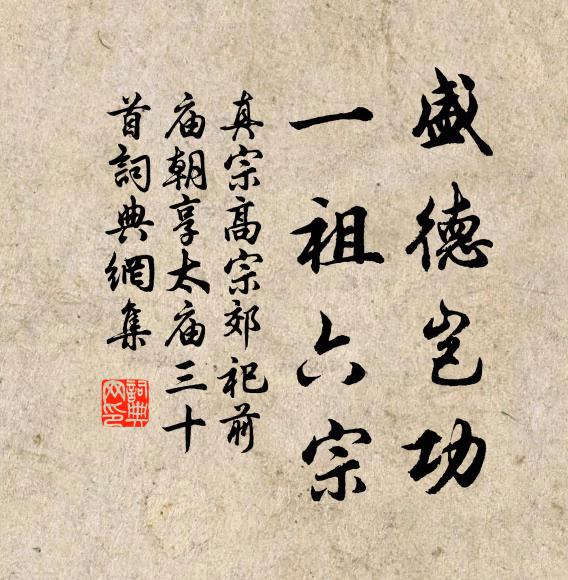 盛德岂功
一祖六宗
真宗高宗郊祀前
庙朝享太庙三十
首詞典網集
詞典网印